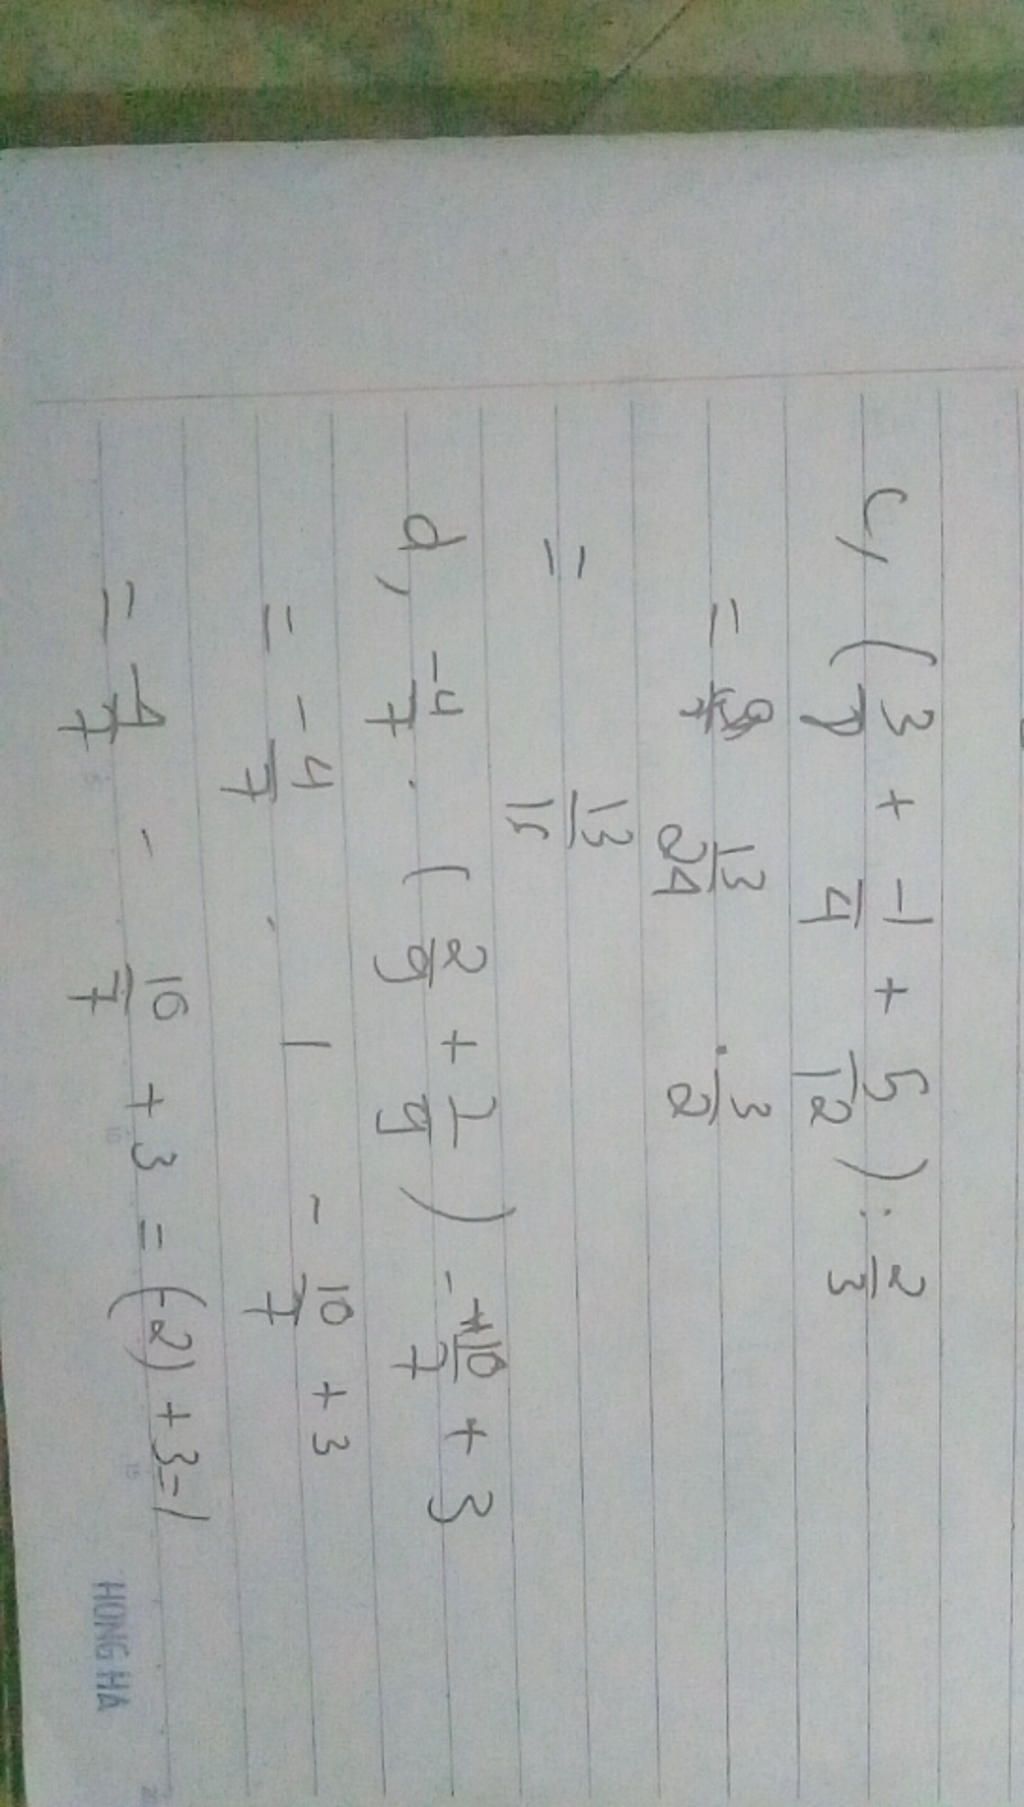 c, (3/8 + -1/4 + 5/12) : 2/3
= 13/24 . 3/2
= 13/16
d, -4/7 . (2/9 + 7/9) - 10/7 + 3
= -4/7 . 1 - 10/7 + 3
= -4/7 - 10/7 + 3 = (-2) + 3 = 1
HONG HA